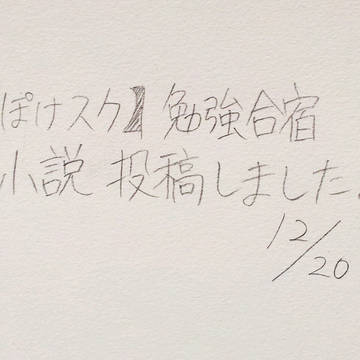 ぽけスク】勉強合宿
小説 投稿しました.
12/20